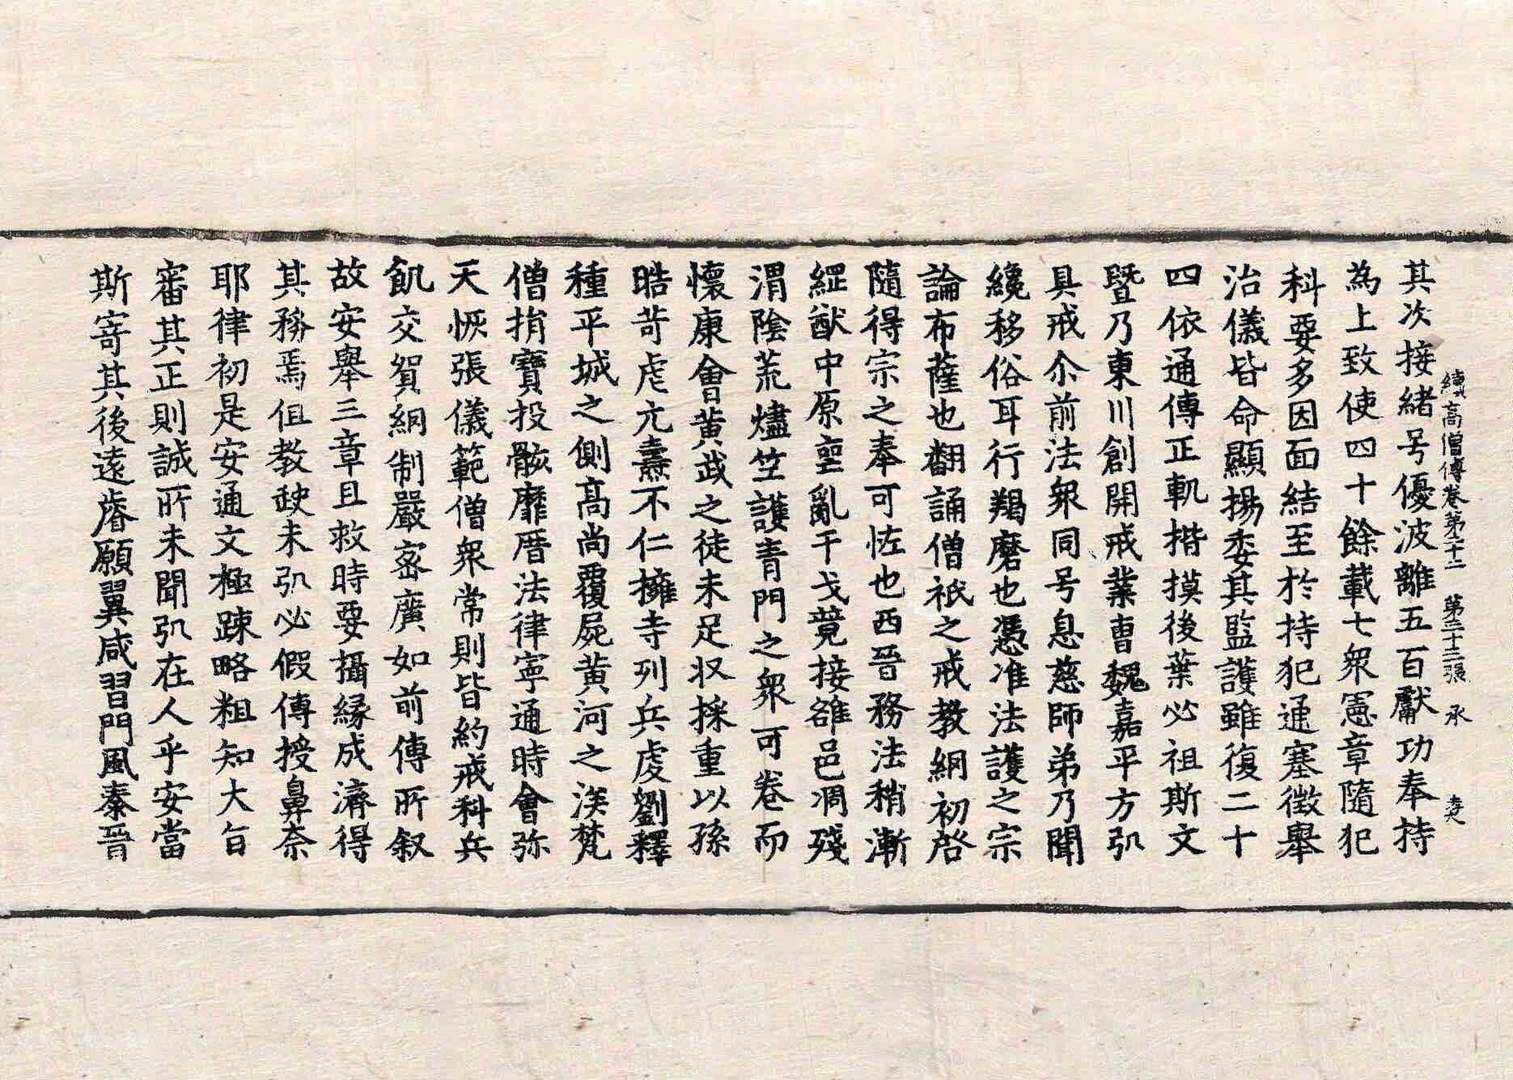 續高僧傳卷第二十二 第三十三張 承
其次接緒号優波離五百獻功奉持
為上致使四十餘載七衆憲章隨犯
科要多因面結至於持犯通塞徵舉
治儀皆命顯揚委其監護雖復二十
四依通傳正軌揩摸後葉必祖斯文
暨乃東川創開戒業曹魏嘉平方弘
具戒尒前法衆同号息慈師弟乃聞
纔移俗耳行羯磨也憑准法護之宗
論布薩也翻誦僧祇之戒教網初啓
隨得宗之奉可恠也西晉務法稍漸
經猷中原亟亂干戈競接雒邑凋殘
渭陰荒燼竺護青門之衆可卷而
懷康會黃武之徒未足収採重以孫
晧苛虐亢燾不仁擁寺列兵虔劉釋
種平城之側髙尚覆屍黄河之渙梵
僧捐寶投骸靡曆法律寧通時會弥
天恢張儀範僧衆常則皆約戒科兵
飢交貿綱制嚴密廣如前傳所叙
故安舉三章且救時要攝緣成濟得
其務焉但教缺未弘必假傳授鼻奈
耶律初是安通文極踈略粗知大旨
審其正則誠所未聞弘在人乎安當
斯寄其後遠睿願翼咸習門風秦晉